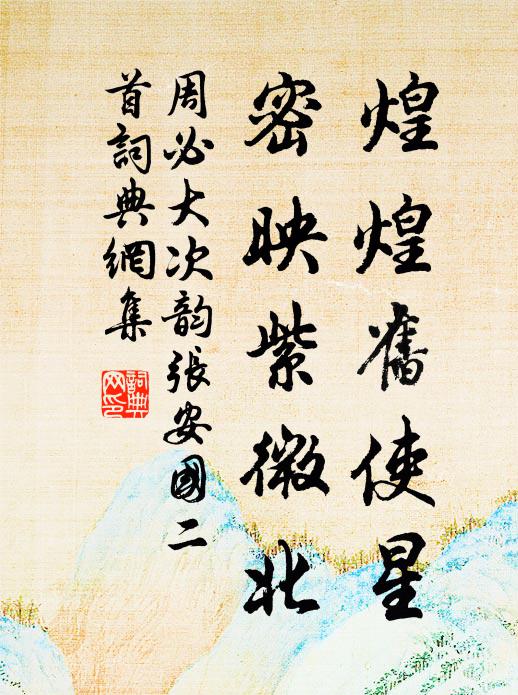 煌煌舊使星
密映紫微北
周必大次韵張安國二
首詞典網集
詞典
网印